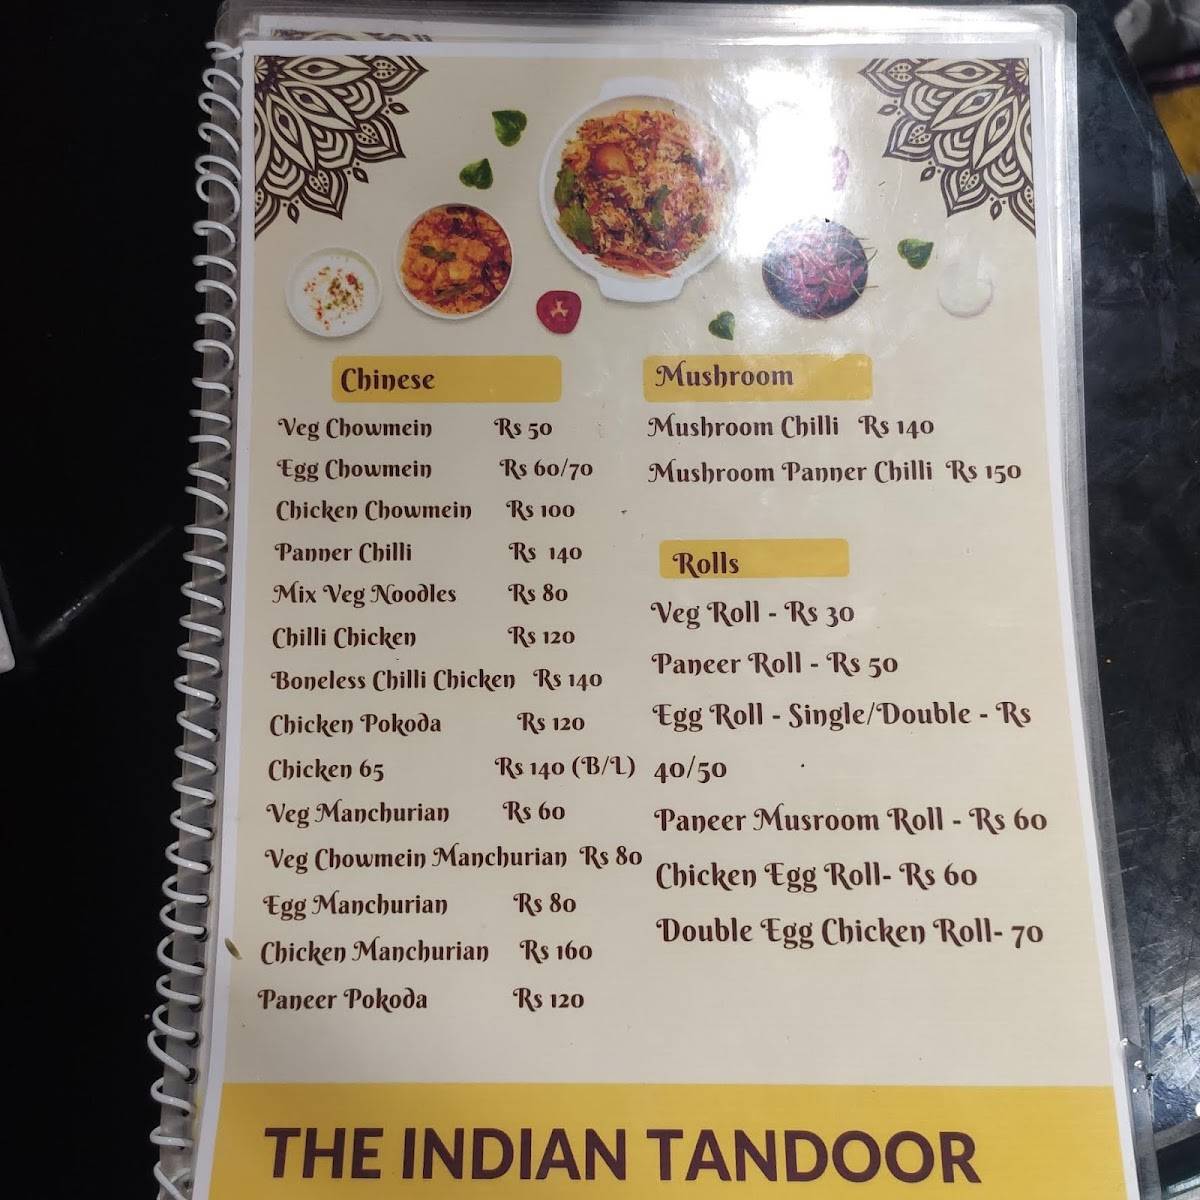 Chinese
Veg Chowmein Rs 50
Egg Chowmein Rs 60/70
Chicken Chowmein Rs 100
Panner Chilli Rs 140
Mix Veg Noodles Rs 80
Chilli Chicken Rs 120
Boneless Chilli Chicken Rs 140
Chicken Pokoda Rs 120
Chicken 65 Rs 140 (B/L)
Veg Manchurian Rs 60
Veg Chowmein Manchurian Rs 80
Egg Manchurian Rs 80
Chicken Manchurian Rs 160
Paneer Pokoda Rs 120
Mushroom
Mushroom Chilli Rs 140
Mushroom Panner Chilli Rs 150
Rolls
Veg Roll - Rs 30
Paneer Roll - Rs 50
Egg Roll - Single/Double - Rs
40/50
Paneer Musroom Roll - Rs 60
Chicken Egg Roll- Rs 60
Double Egg Chicken Roll- 70
THE INDIAN TANDOOR